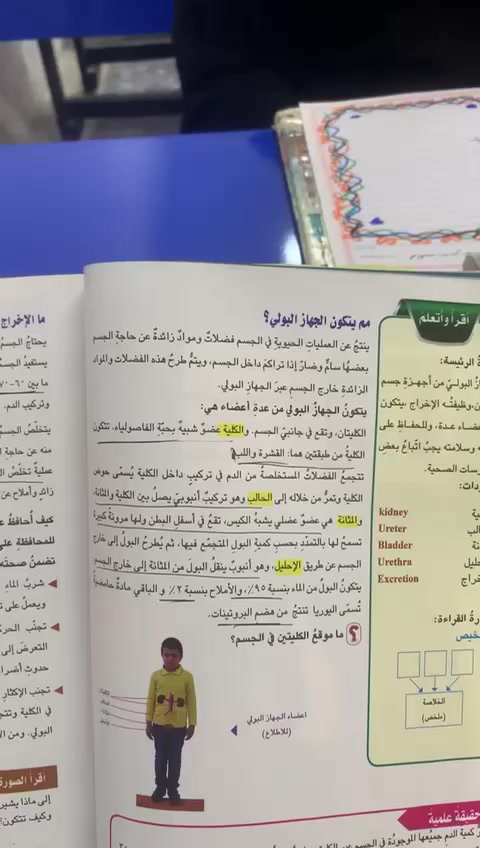 اقرأ وأتعلم
الرئيسة:
البولي من أجهزة جسم
وظيفته الإخراج، يتكون
عدة، وللحفاظ على
وسلامته يجب اتباع بعض
الصحية.
kidney
Ureter
Bladder
Urethra
Excretion
القراءة:
الخلاصة
(ملخص)
مم يتكون الجهاز البولي؟
ينتج عن العمليات الحيوية في الجسم فضلات ومواد زائدة عن حاجة الجسم
بعضها سام وضار إذا تراكم داخل الجسم، ويتم طرح هذه الفضلات والمواد
الزائدة خارج الجسم عبر الجهاز البولي.
يتكون الجهاز البولي من عدة أعضاء هي:
الكليتان، وتقع في جانبي الجسم. والكلية عضو شبيه بحبة الفاصولياء، تتكون
الكلية من طبقتين هما: القشرة واللب.
تتجمع الفضلات المستخلصة من الدم في تركيب داخل الكلية يسمى حوض
الكلية وتمر من خلاله إلى الحالب وهو تركيب أنبوبي يصل بين الكلية والمثانة،
والمثانة هي عضو عضلي يشبه الكيس، تقع في أسفل البطن ولها مرونة كبيرة
تسمح لها بالتمدد بحسب كمية البول المتجمع فيها، ثم يطرح البول إلى خارج
الجسم عن طريق الإحليل، وهو أنبوب ينقل البول من المثانة إلى خارج الجسم
يتكون البول من الماء بنسبة ٩٥٪، والأملاح بنسبة ٢٪ و الباقي مادة حامضية
تسمى اليوريا تنتج من هضم البروتينات.
؟ ما موقع الكليتين في الجسم؟
اعضاء الجهاز البولي
(للاطلاع)
حقيقة علمية
كمية الدم جميعها الموجودة في الجسم
ما الإخراج
يحتاج الجسم
يستفيد الجسم
ما بين ٦٠-٧٠
وتركيب الدم.
يتخلص الجسم
منه عن حاجة
عملية تخلص
زائد وأملاح عن
كيف أحافظ
للمحافظة على
تضمن صحته
شرب الماء
ويعمل على
تجنب
التعرض إلى
حدوث
تجنب الإكثار
في الكلية
البولي. ومن
أقرأ الصورة
إلى ماذا يشير
وكيف تتكون؟